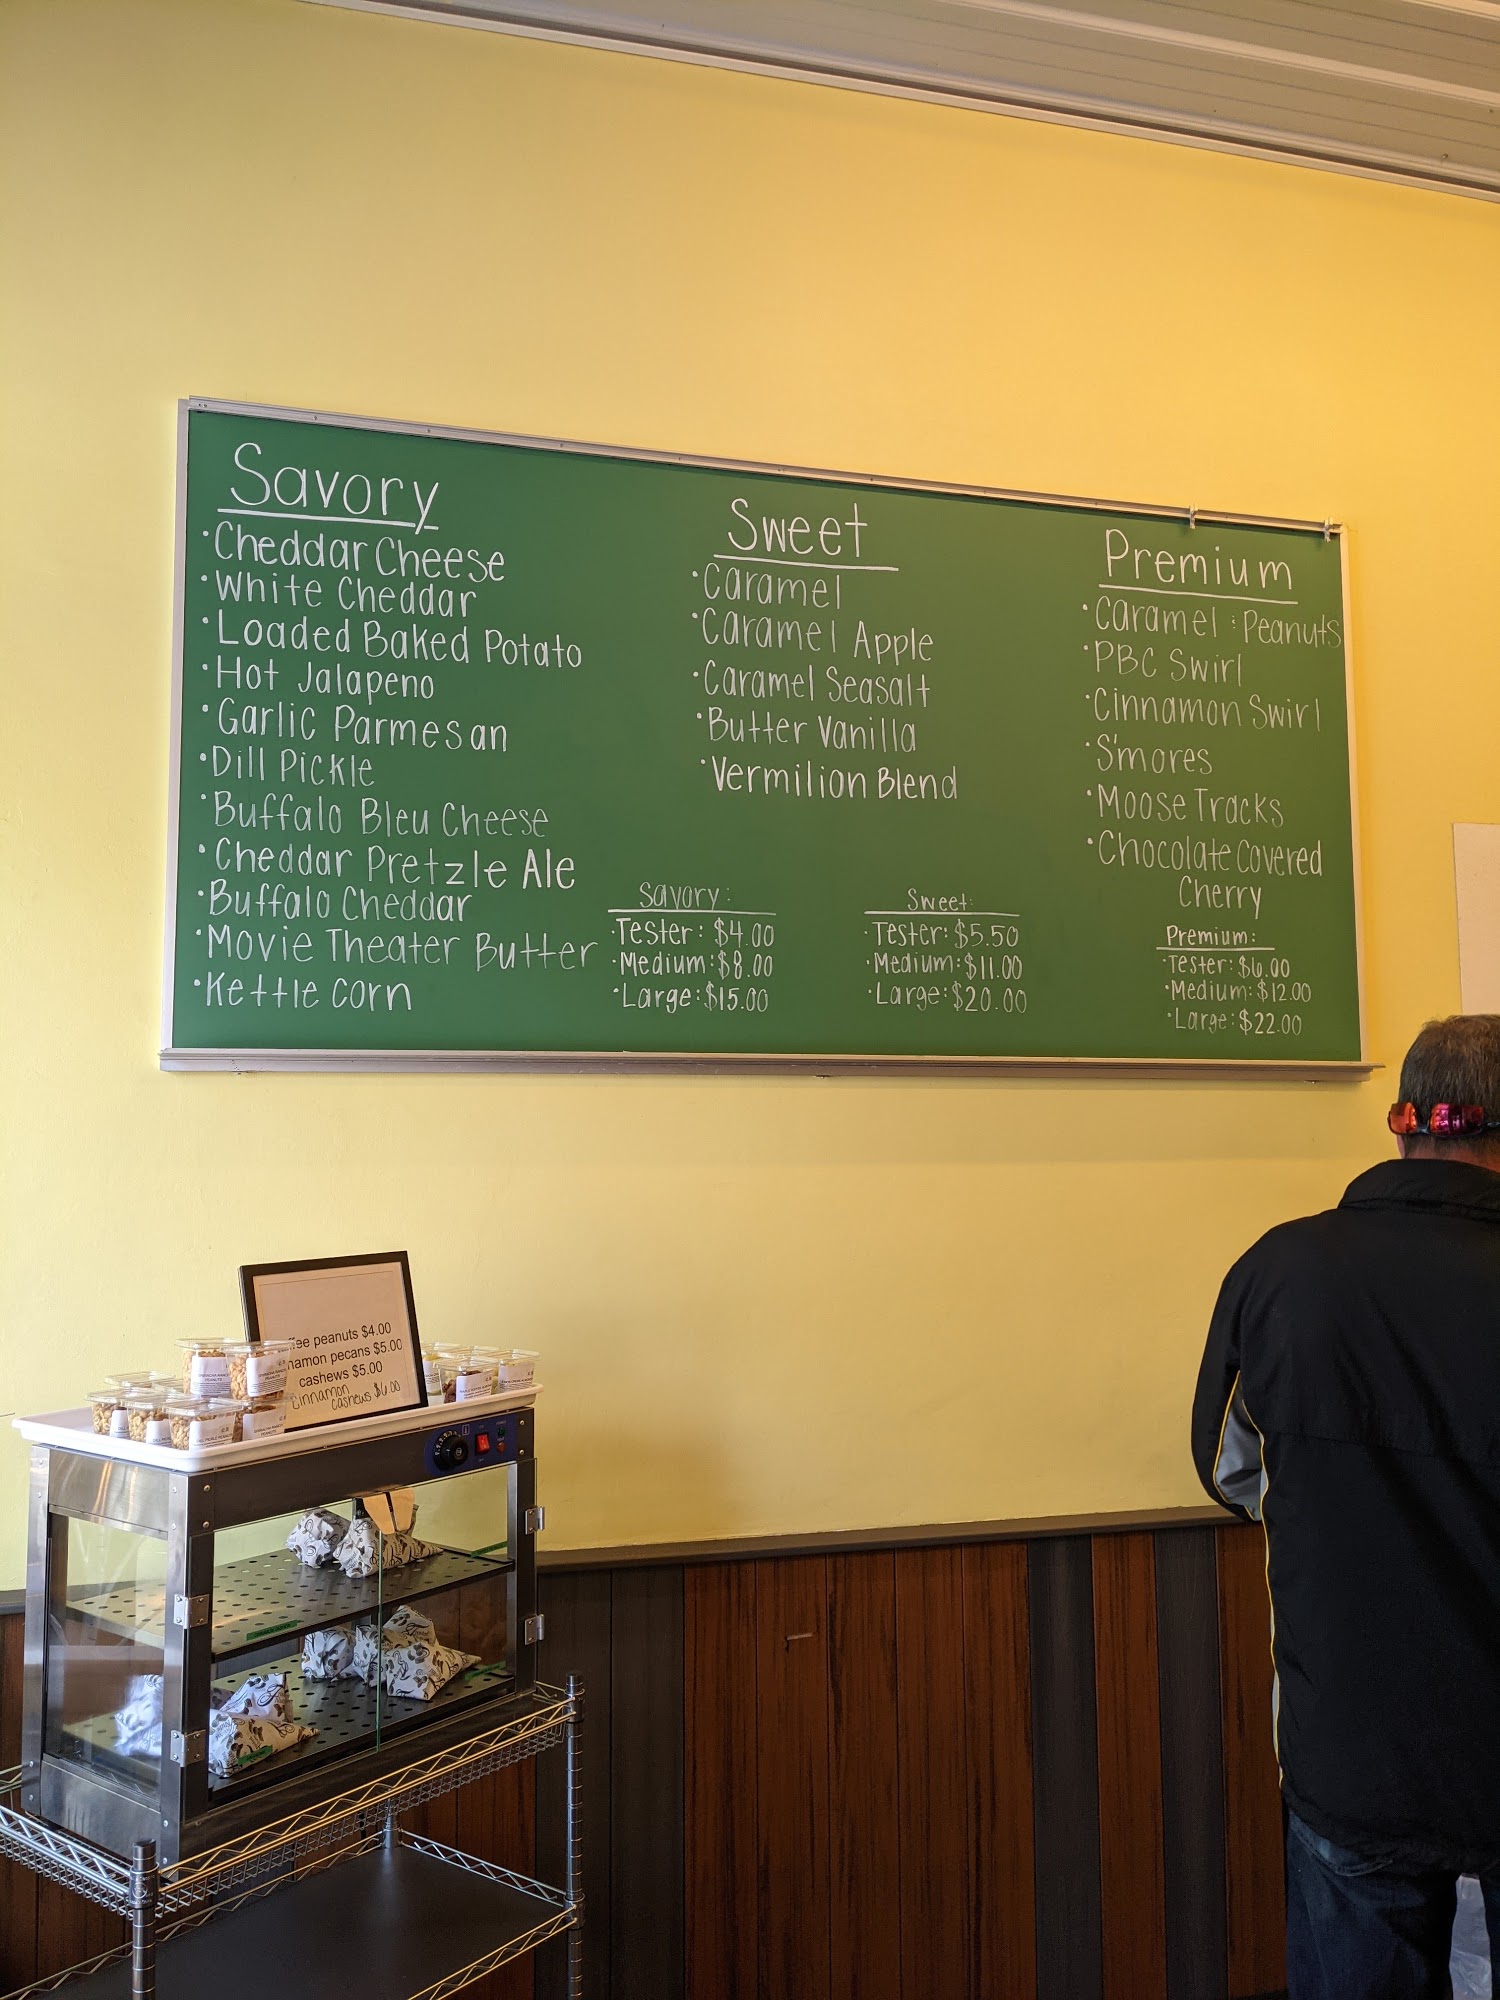 Savory
·Cheddar Cheese
·White Cheddar
·Loaded Baked Potato
·Hot Jalapeno
·Garlic Parmesan
·Dill Pickle
·Buffalo Bleu Cheese
·Cheddar Pretzle Ale
·Buffalo Cheddar
·Movie Theater Butter
·Kettle corn
Sweet
·Caramel
·Caramel Apple
·Caramel Seasalt
·Butter Vanilla
·Vermilion Blend
Premium
·Caramel & Peanuts
·PBC Swirl
·Cinnamon Swirl
·S'mores
·Moose Tracks
·Chocolate Covered
Cherry
Savory:
·Tester: $4.00
·Medium: $8.00
·Large: $15.00
Sweet:
·Tester: $5.50
·Medium: $11.00
·Large: $20.00
Premium:
·Tester: $6.00
·Medium: $12.00
·Large: $22.00
peanuts $4.00
pecans $5.00
cashews $5.00
Cinnamon
cashews $6.00